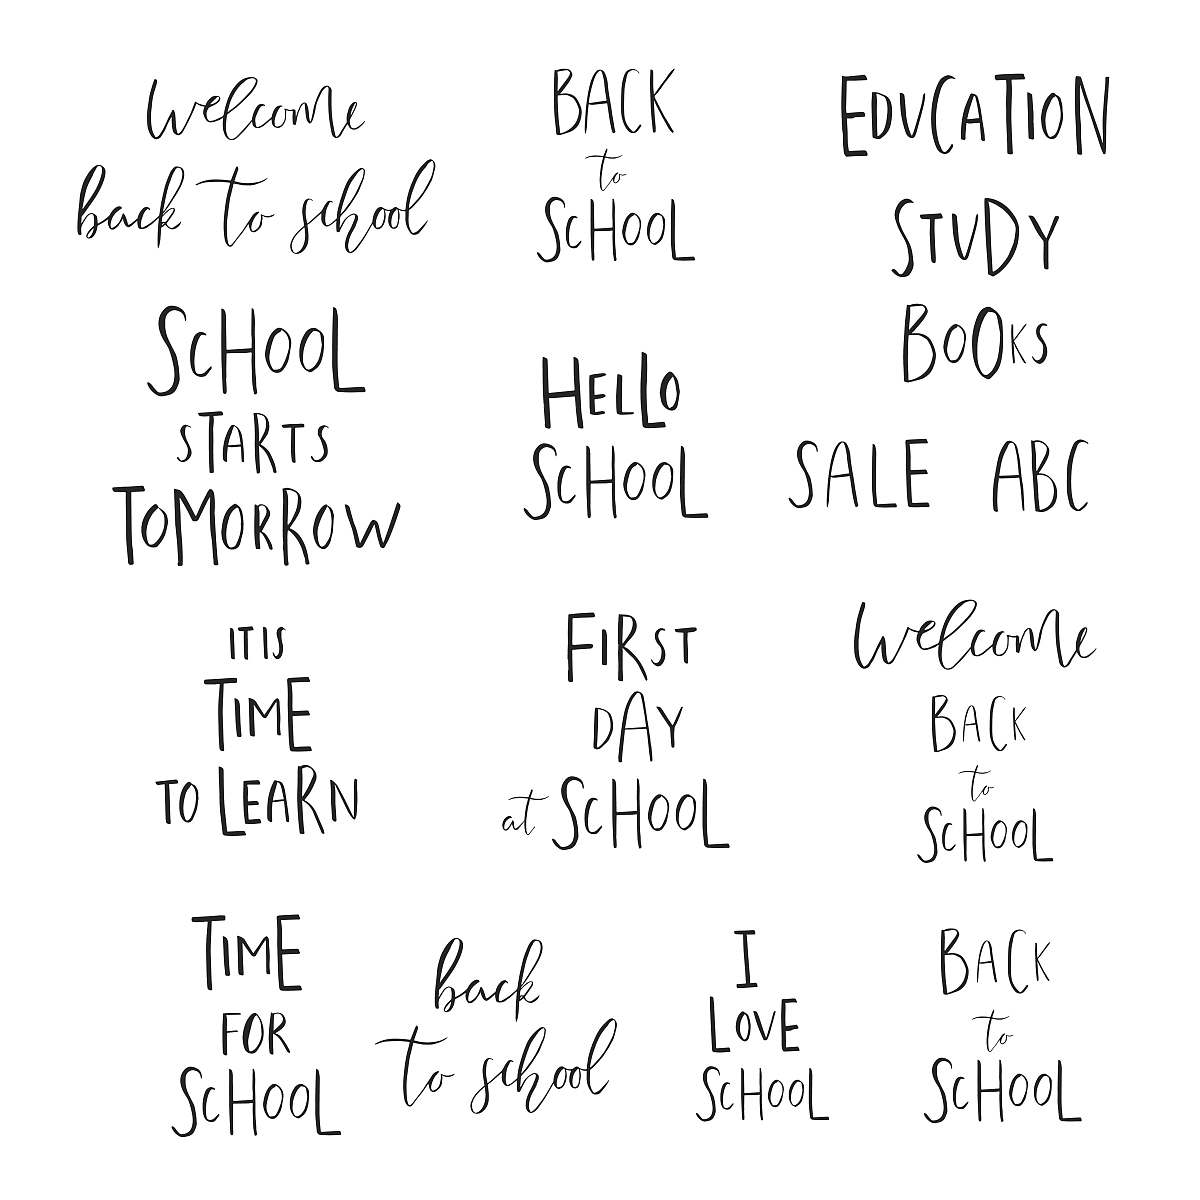 Welcome
back to school
BACK
to
SCHOOL
EDUCATION
STUDY
BOOKS
SALE ABC
SCHOOL
STARTS
TOMORROW
HELLO
SCHOOL
IT IS
TIME
TO LEARN
FIRST
DAY
at SCHOOL
Welcome
BACK
to
SCHOOL
TIME
FOR
SCHOOL
back
to school
I
LOVE
SCHOOL
BACK
to
SCHOOL